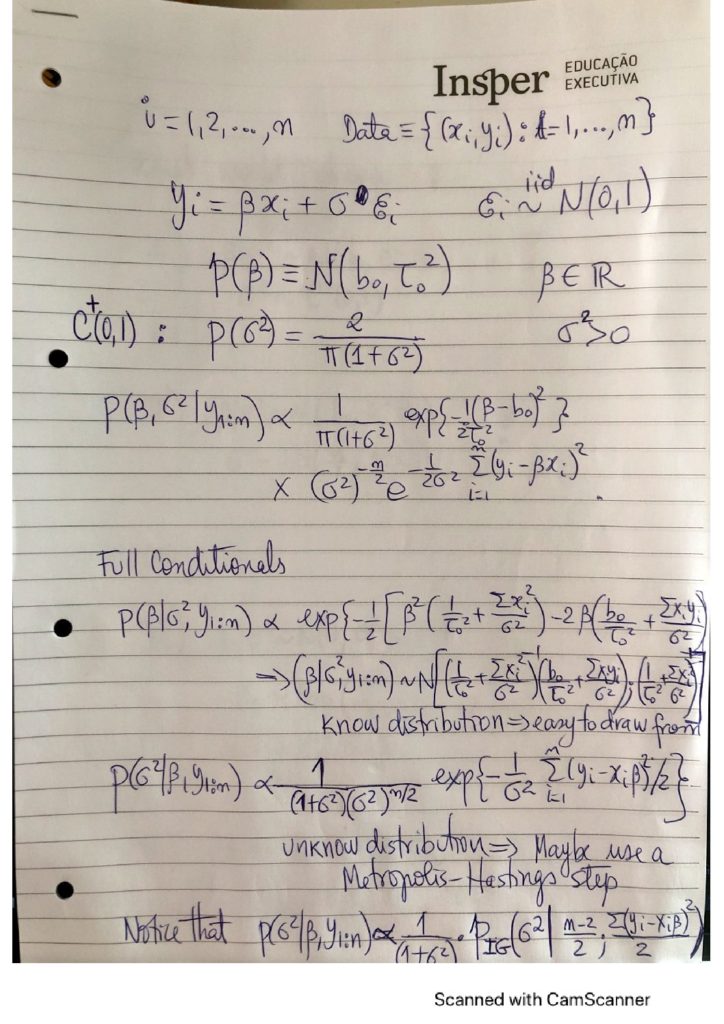 Insper EDUCAÇÃO EXECUTIVA
i = 1, 2, ..., n Data ≡ {(x_i, y_i) : i = 1, ..., n}
y_i = βx_i + σ ε_i ε_i ~iid N(0,1)
p(β) ≡ N(b_0, τ_0^2) β ∈ ℝ
C^+(0,1) : p(σ^2) = 2 / (π(1+σ^2)) σ^2 > 0
p(β, σ^2 | y_{1:n}) ∝ 1 / (π(1+σ^2)) exp{-1/(2τ_0^2) (β-b_0)^2}
× (σ^2)^{-n/2} e^{-1/(2σ^2) Σ_{i=1}^n (y_i - βx_i)^2} .
Full Conditionals
p(β|σ^2, y_{1:n}) ∝ exp{-1/2 [β^2 (1/τ_0^2 + Σx_i^2/σ^2) - 2β(b_0/τ_0^2 + Σx_i y_i/σ^2)
⇒ (β|σ^2, y_{1:n}) ~ N[(1/τ_0^2 + Σx_i^2/σ^2)^{-1} (b_0/τ_0^2 + Σx_i y_i/σ^2) ; (1/τ_0^2 + Σx_i^2/σ^2)^{-1}]
Know distribution ⇒ easy to draw from
p(σ^2|β, y_{1:n}) ∝ 1 / ((1+σ^2)(σ^2)^{n/2}) exp{-1/σ^2 Σ_{i=1}^n (y_i - x_iβ)^2/2}
unknow distribution ⇒ Maybe use a
Metropolis-Hastings step
Notice that p(σ^2|β, y_{1:n}) ∝ 1/(1+σ^2) · p_{IG}(σ^2 | (n-2)/2 ; Σ(y_i - x_iβ)^2/2)
Scanned with CamScanner